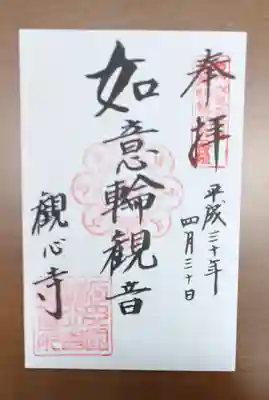 奉拝
平成三十年
四月三十日
如意輪観音
観心寺